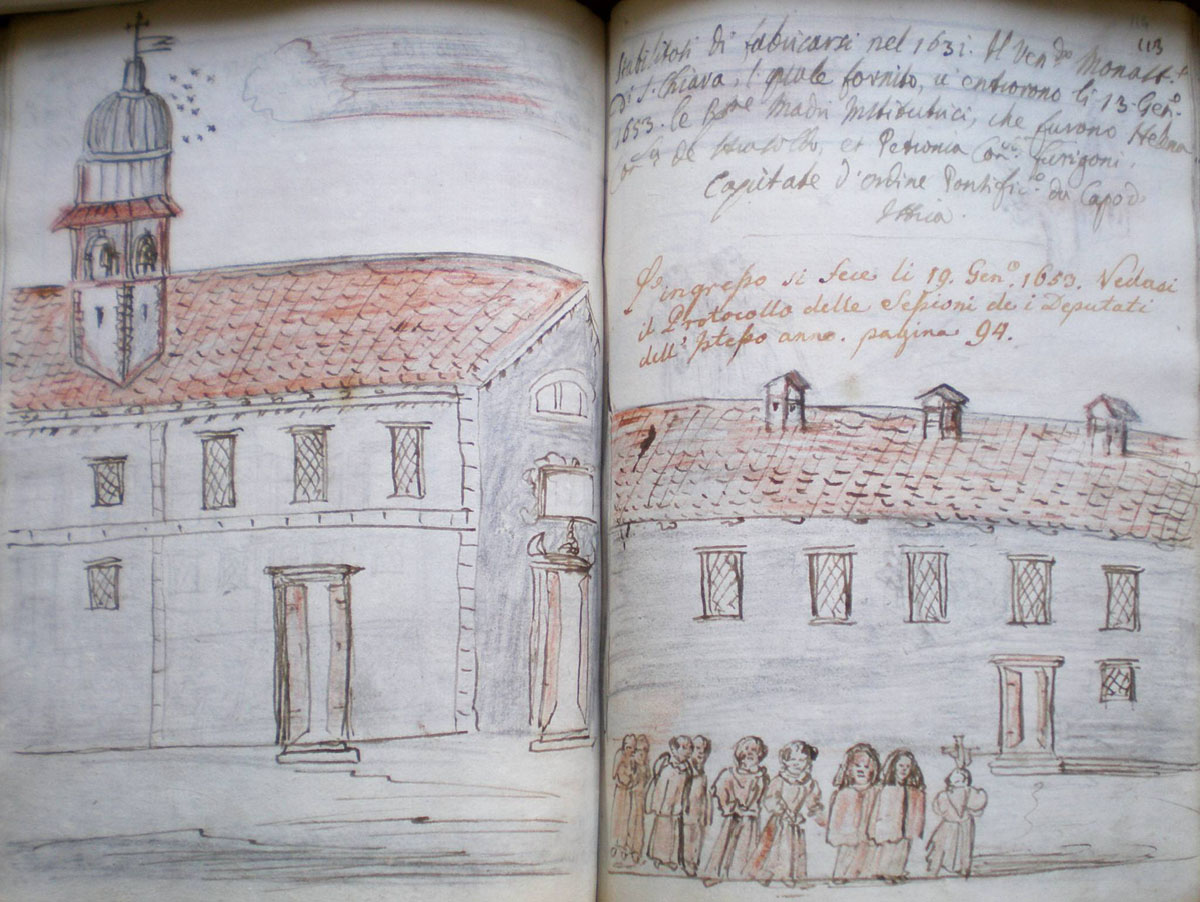 114
113
di fabricarsi nel 1631. Il Ven.do Monast.o
Di S. Chiara, il quale fornito, u' entrorono li 13 Gen.o
1653. le Madri Institutrici, che furono Helena
de et Petronia Furigoni.
Capitate d'ordine Pontific.o da Capod
Istria.
L'ingresso si fece li 19. Gen.o 1653. Vedasi
il Protocollo delle Sessioni de i Deputati
dell' istesso anno. pagina 94.